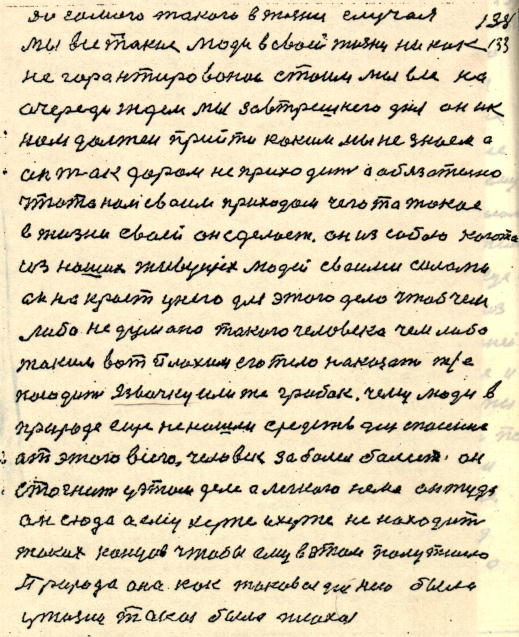 до самого такого в жизни случая 138
мы все такие люди в своей жизни ни как 133
не гарантированои стоим мы все на
очереди ждем мы завтрешнего дня он ик
нам должен прийти каким мы не знаем а
он так даром не приходит а обязательно
что то нам своим приходом чего то такое
в жизни своей он сделает. он из собою кого то
из наших живущех людей своими силами
он на кроет у него для этого дело чтоб чем
либо не думано такого человека чем либо
таким вот плохим его тело наказат
посодит Язвачку или же грибок. чему люди в
природе еще не нашли средств для спасения
от этого всего, человек заболел болеет он
стогнит у этом деле а легкого нема он туды
он сюда а ему хуже и хуже не находит
таких концов чтобы ему в этом получшило
Природа она как таковая для него была
у жизни такая была плохая